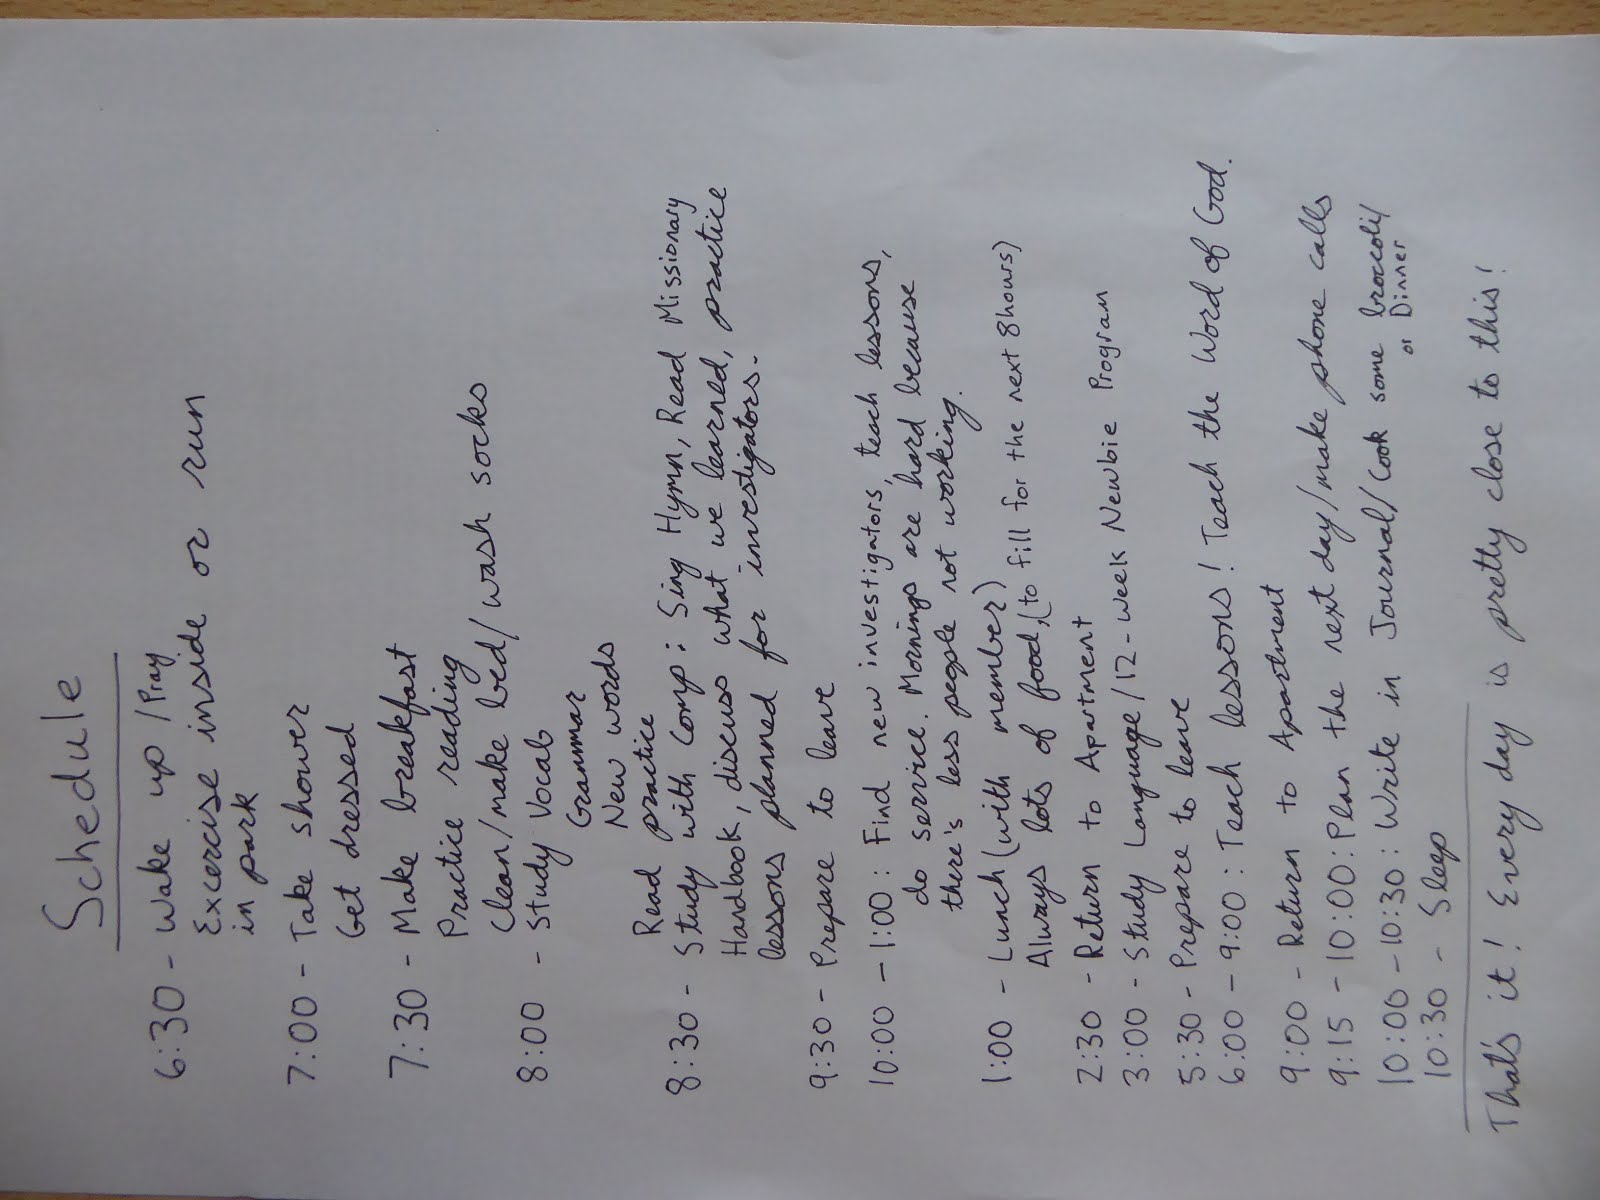 Schedule
6:30 - Wake up / Pray
Excercise inside or run
in park
7:00 - Take shower
Get dressed
7:30 - Make breakfast
Practice reading
Clean/make bed/wash socks
8:00 - Study Vocab
Grammar
New words
Read practice
8:30 - Study with Comp: Sing Hymn, Read Missionary
Handbook, discuss what we learned, practice
lessons planned for investigators.
9:30 - Prepare to leave
10:00 - 1:00: Find new investigators, teach lessons,
do service. Mornings are hard because
there's less people not working.
1:00 - Lunch (with member)
Always lots of food, (to fill for the next 8hours)
2:30 - Return to Apartment
3:00 - Study Language/12-week Newbie Program
5:30 - Prepare to leave
6:00 - 9:00: Teach lessons! Teach the Word of God.
9:00 - Return to Apartment
9:15 - 10:00: Plan the next day/make phone calls
10:00 - 10:30: Write in Journal/Cook some broccoli/
or Dinner
10:30 - Sleep
That's it! Every day is pretty close to this!